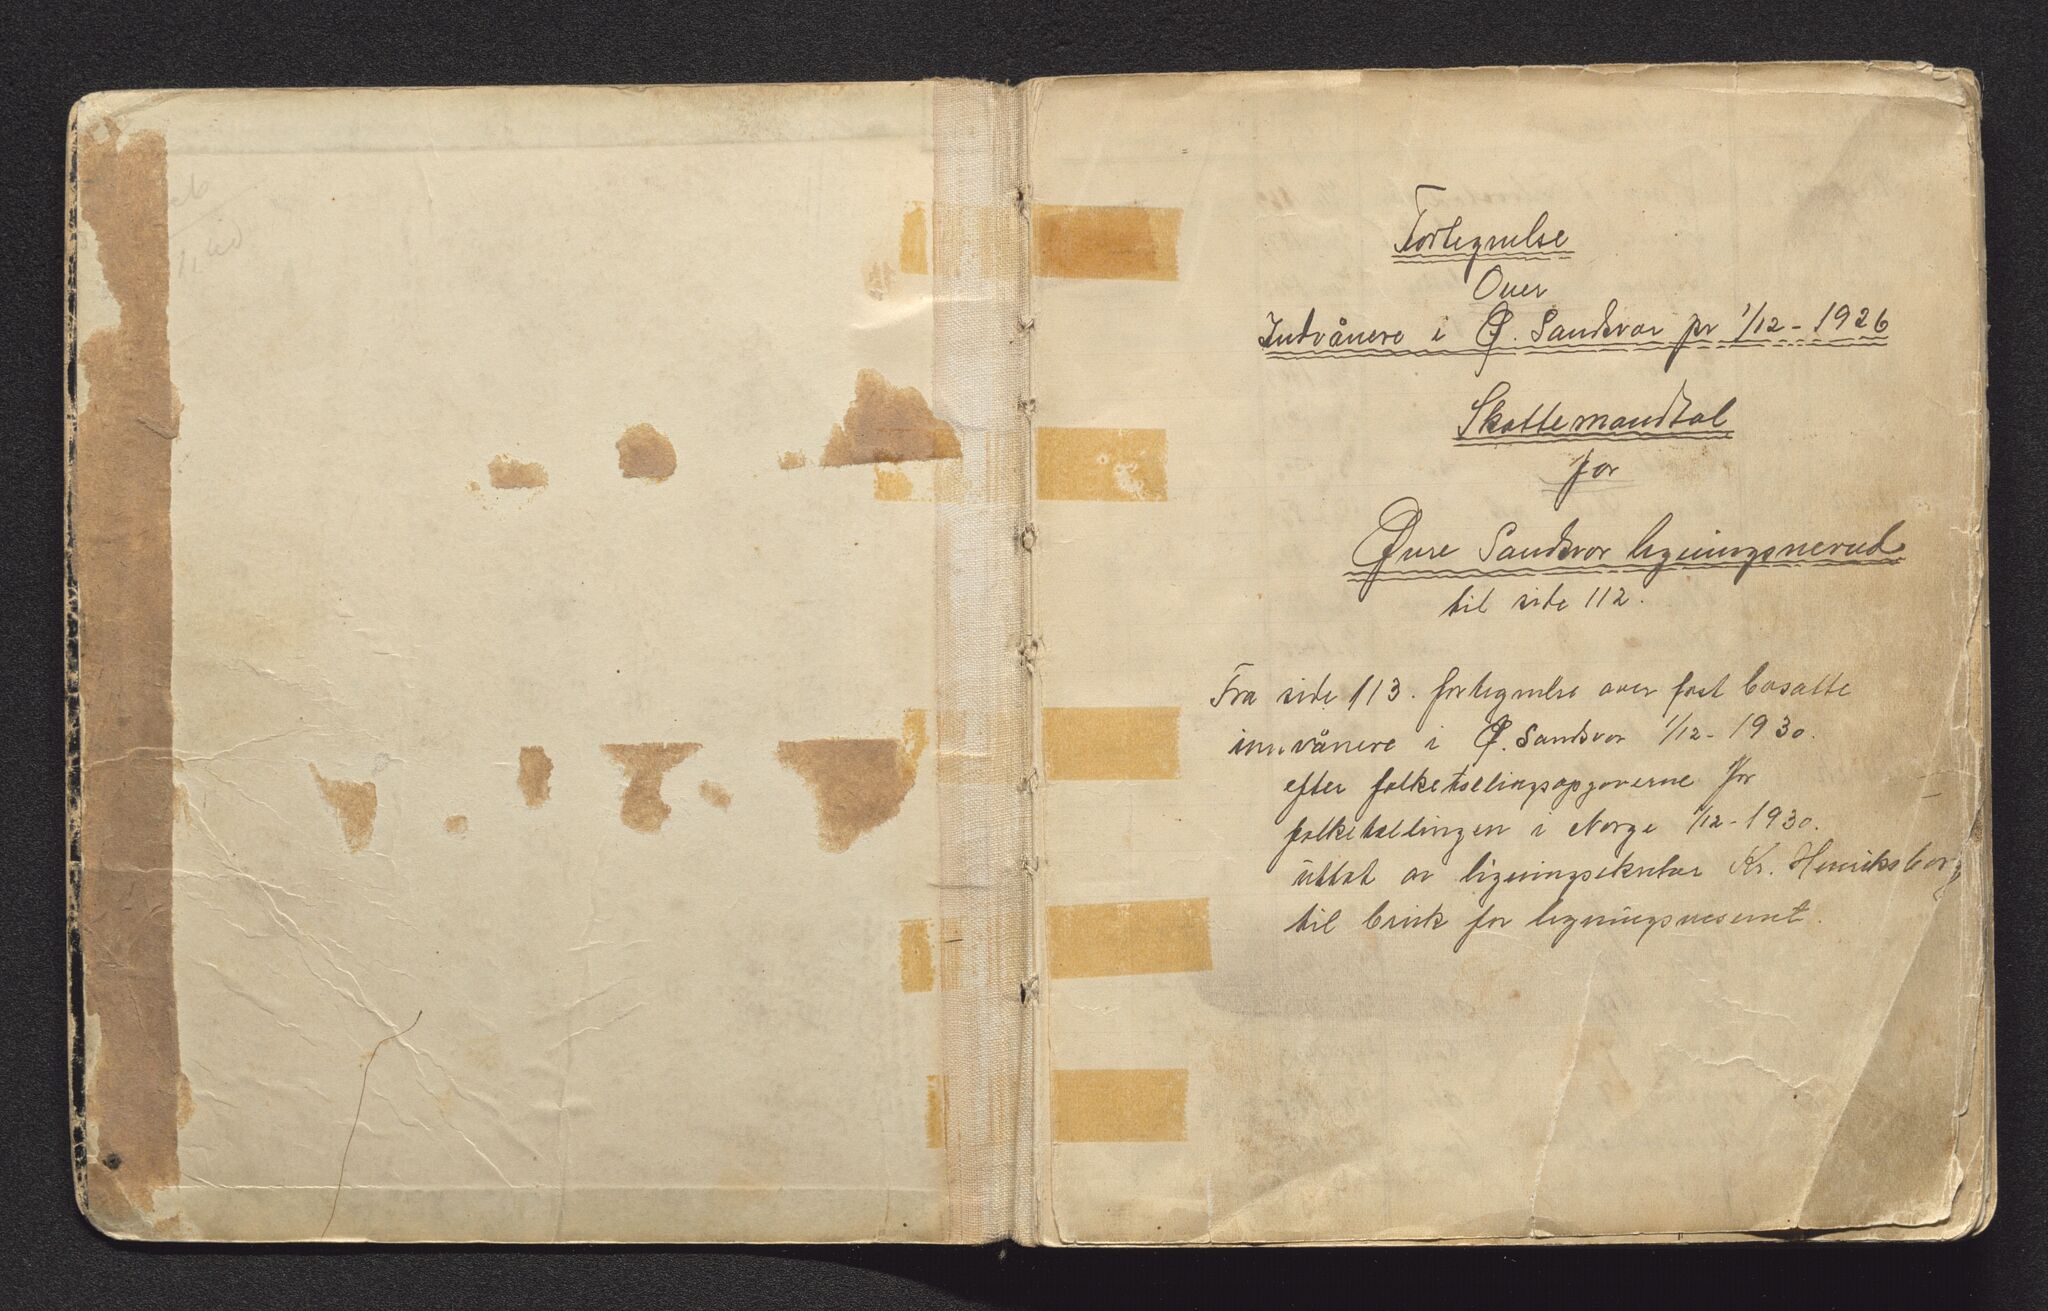 Fortegnelse
Over
Indvånere i Ø. Sandsvær pr 1/12 - 1926
Skattemandtal
for
Øvre Sandsvær ligningsnevnd
til side 112.
Fra side 113. fortegnelse over fast bosatte
innvånere i Ø. Sandsvær 1/12 - 1930.
efter folketællingsopgaverne for
folketællingen i Norge 1/12 - 1930.
uttat av ligningsekretær Kr. Henriksborg
til bruk for ligningsvesenet.